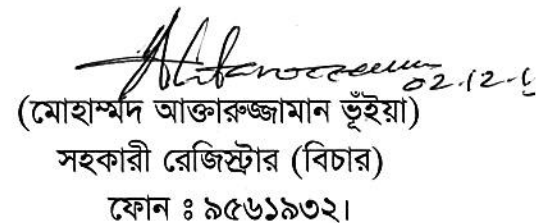 02.12.
(মোহাম্মদ আক্তারুজ্জামান ভূঁইয়া)
সহকারী রেজিস্ট্রার (বিচার)
ফোন ঃ ৯৫৬১৯৩২।